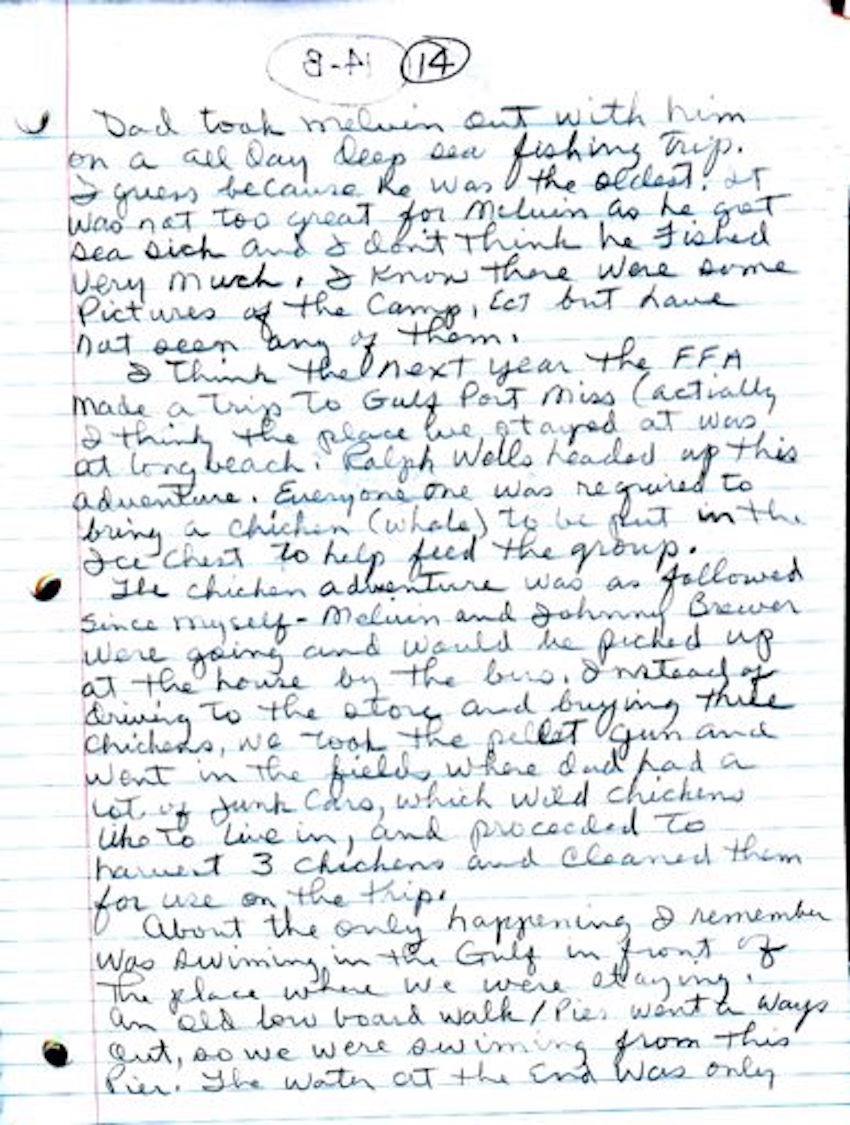 14-B 14
Dad took Melvin out with him
on a all Day Deep sea fishing Trip.
I guess because he was the oldest. It
was not too great for Melvin as he got
sea sick and I don't Think he Fished
Very Much. I Know there were some
Pictures of the Camp, Ect but have
not seen any of them.
I Think the next year the FFA
made a Trip To Gulf Port Miss (actially
I think the place we stayed at was
at long beach. Ralph Wells headed up this
adventure. Everyone one was required to
bring a chicken (whole) to be put in the
Ice Chest to help feed the group.
The chicken adventure was as followed
Since myself - Melvin and Johnny Brewer
were going and would be picked up
at the house by the bus. Instead of
driving To the store and buying three
chickens, we took the pellet gun and
went in the fields where dad had a
Lot of Junk Cars, which wild chickens
like To live in, and proceeded To
harvest 3 chickens and cleaned them
for use on the trip.
About the only happening I remember
was swiming in the Gulf in front of
The place where we were staying.
An old low board walk/Pier went a ways
Out, so we were swiming from this
Pier. The water at the End was only